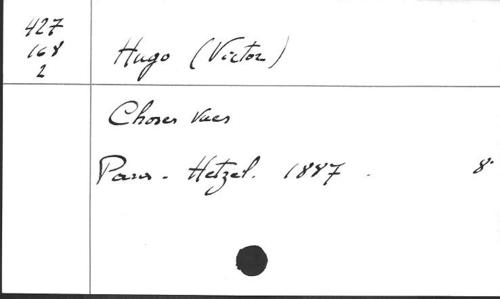 427
168
2
Hugo (Victor)
Choses Vues
Paris - Hetzel. 1887 . 8°